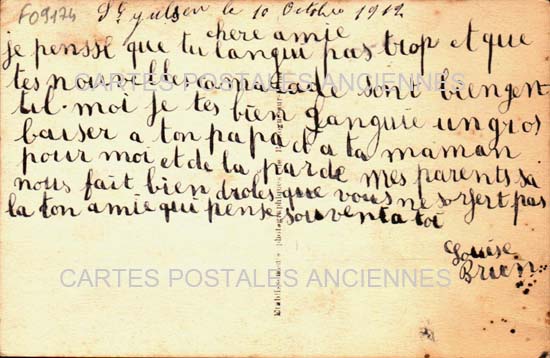 F09174
le 10 Octobre 1912
chere amie
je pensse que tu langui pas trop et que
tes nouvelle camatade sont biengent
til. moi je tes bien languie un gros
baiser a ton papa et a ta maman
pour moi et de la parde mes parents sa
nous fait bien droles que vous ne sorfert pas
la ton amie qui pense souvent a toi
Louise
Brun
CARTES POSTALES ANCIENNES
CARTES POSTALES ANCIENNES
Etablissements photographiques de